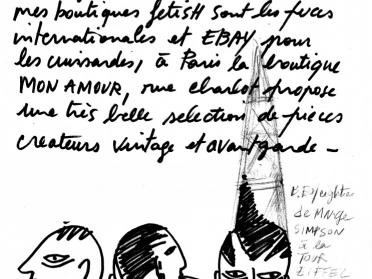 mes boutiques fetiSH sont les puces
internationales et EBAY pour
les cuissardes, à Paris la boutique
MON AMOUR, rue charlot propose
une très belle selection de pièces
createurs vintage et avantgarde -
de Marge
SIMPSON
à la
TOUR
EIFFEL